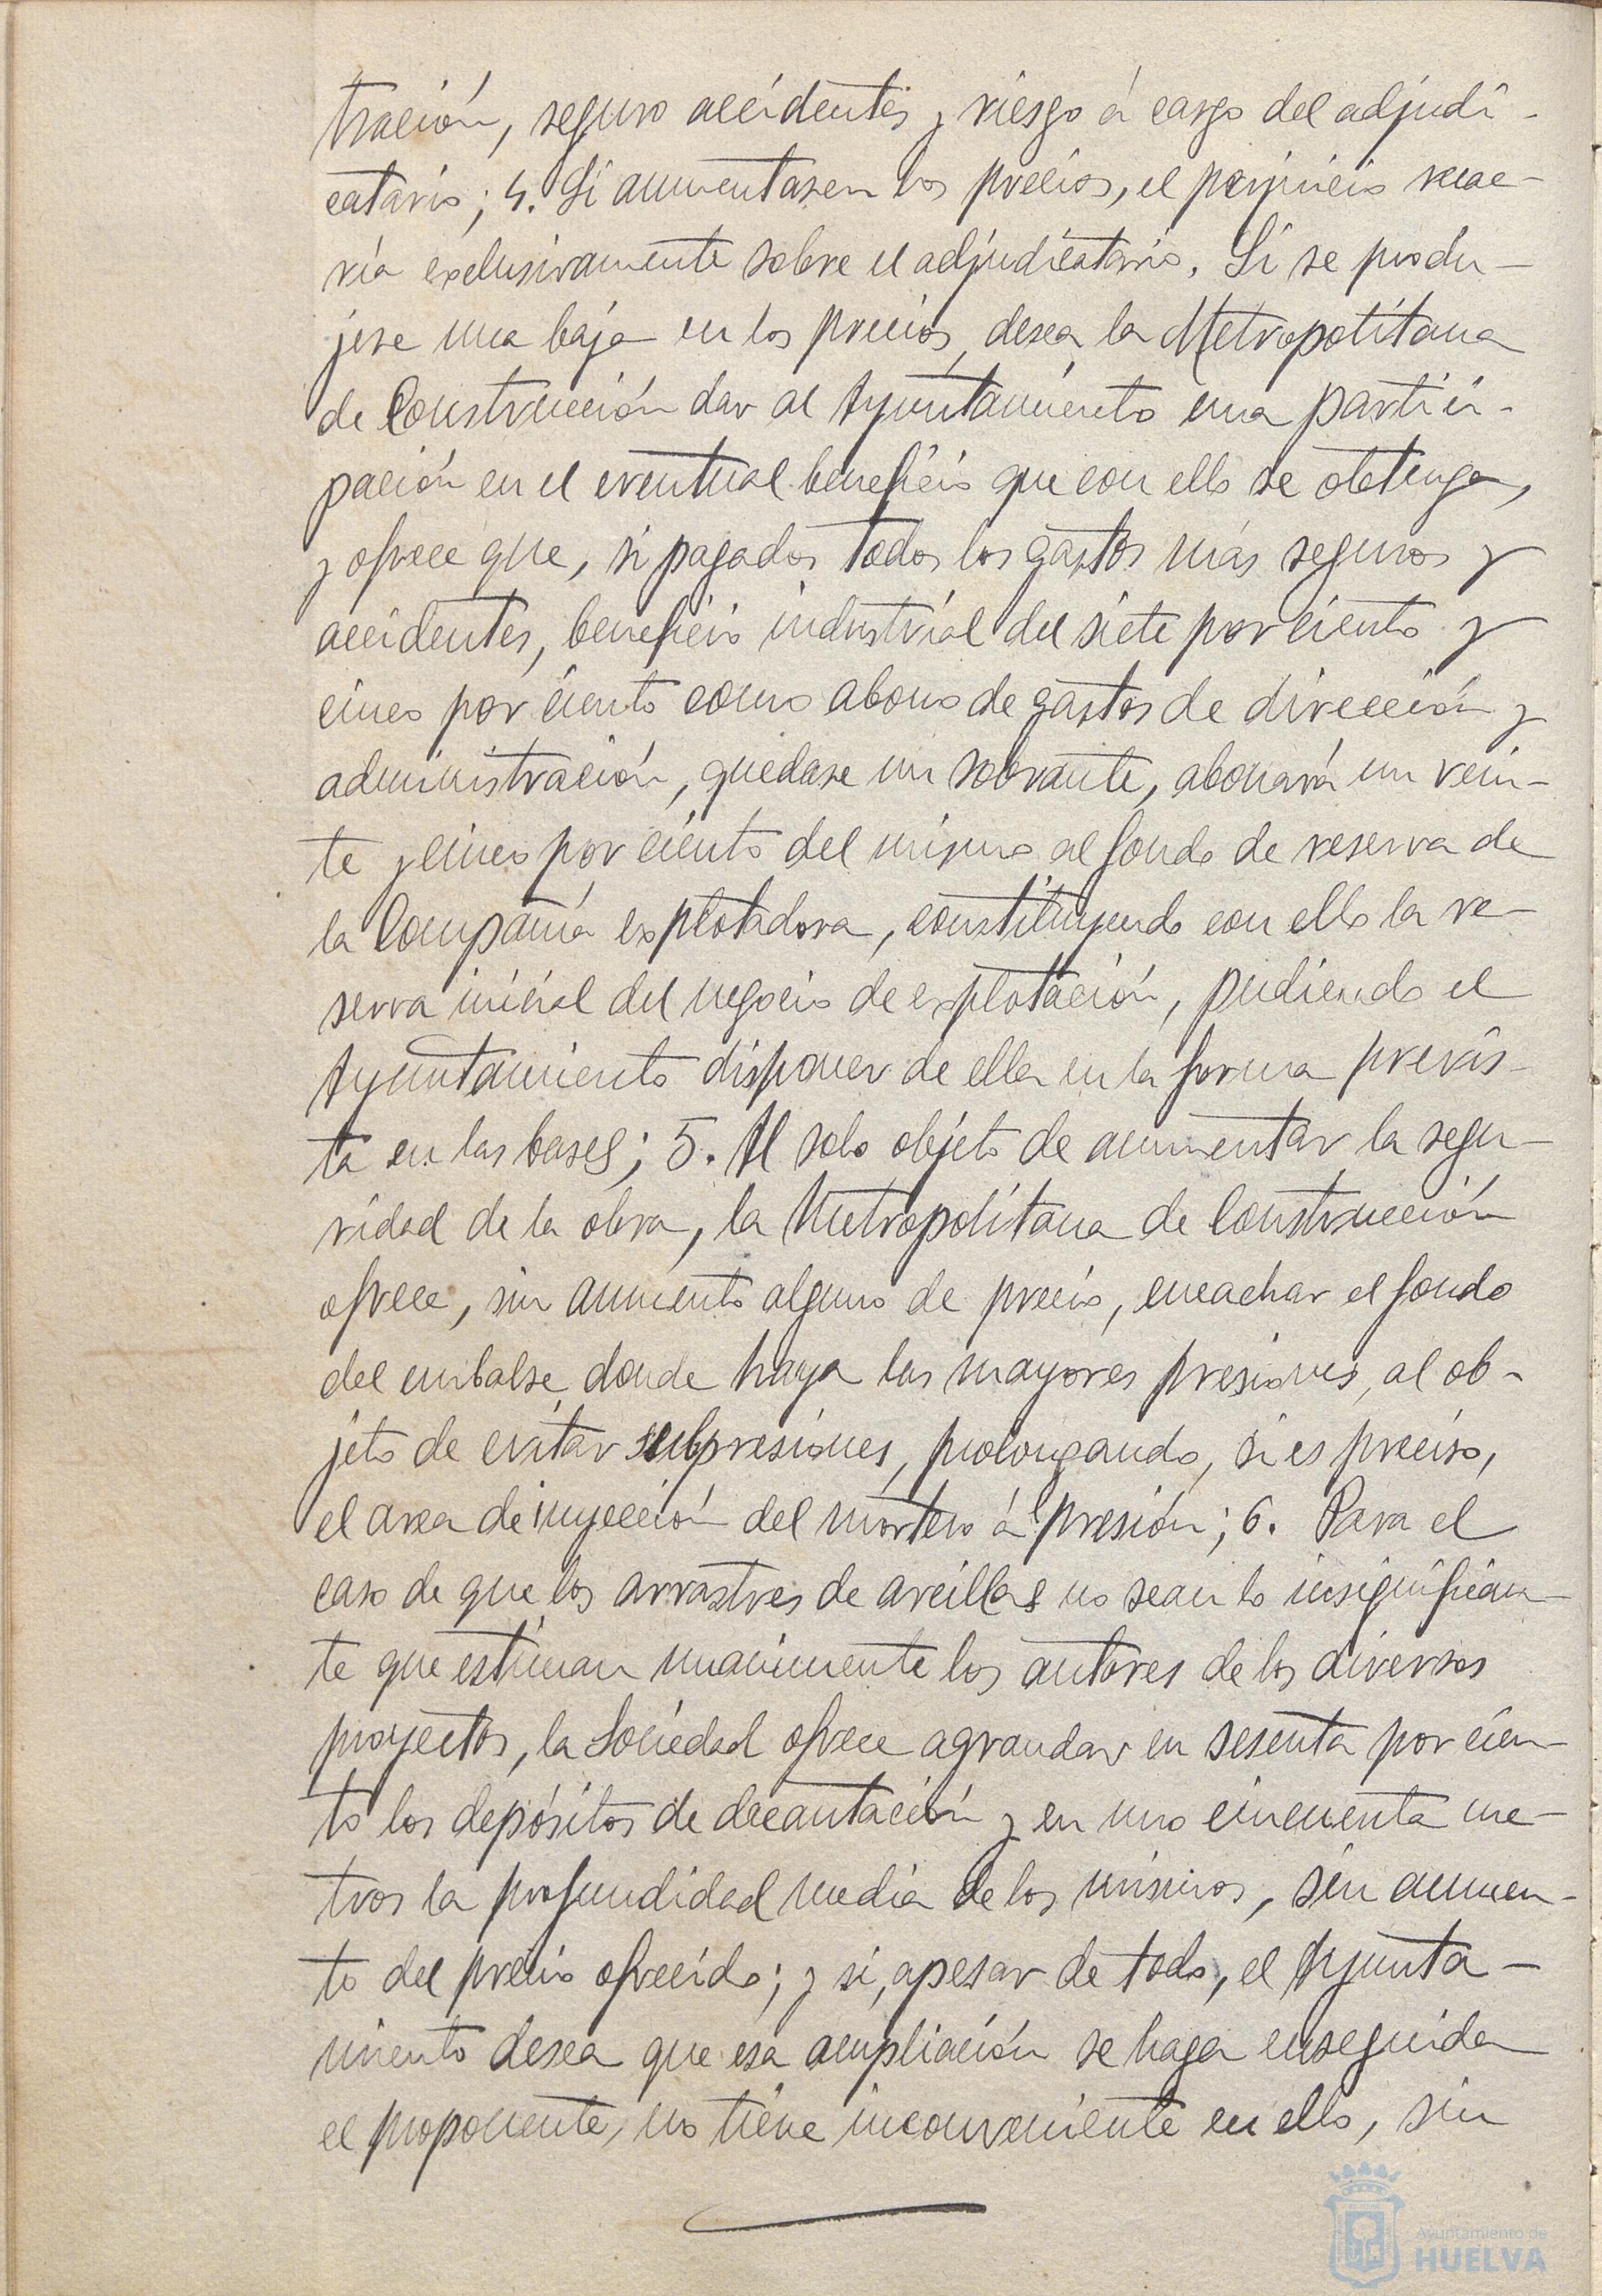 tración, seguro accidentes y riesgo á cargo del adjudi-
catario; 4. Si aumentasen los precios, el perjuicio recae-
ría exclusivamente sobre el adjudicatario. Si se produ-
jese una baja en los precios, desea la Metropolitana
de Construcción dar al Ayuntamiento una partici-
pación en el eventual beneficio que con ello se obtenga,
y ofrece que, si pagados todos los gastos más seguros y
accidentes, beneficio industrial del siete por ciento y
cinco por ciento como abono de gastos de dirección y
administración, quedase un sobrante, abonará un vein-
te y cinco por ciento del mismo al fondo de reserva de
la Compañía explotadora, constituyendo con ello la re-
serva inicial del negocio de explotación, pudiendo el
Ayuntamiento disponer de ella en la forma previs-
ta en las bases; 5. Al solo objeto de aumentar la segu-
ridad de la obra, la Metropolitana de Construcción
ofrece, sin aumento alguno de precio, encachar el fondo
del embalse, donde haya las mayores presiones, al ob-
jeto de evitar subpresiones, prolongando, si es preciso,
el area de inyección del mortero á presión; 6. Para el
caso de que los arrastres de arcillas no sean lo insignifican-
te que estiman unanimente los autores de los diversos
proyectos, la Sociedad ofrece agrandar en sesenta por cien-
to los depósitos de decantación y en uno cincuenta me-
tros la profundidad media de los mismos, sin aumen-
to del precio ofrecido; y si, apesar de todo, el Ayunta-
miento desea que esa ampliación se haga enseguida
el proponente, no tiene inconveniente en ello, sin
Ayuntamiento de
HUELVA